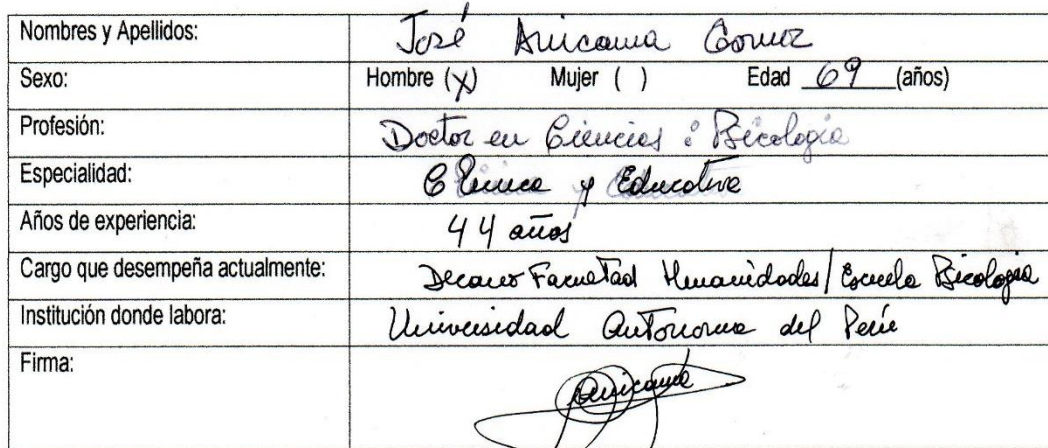 Nombres y Apellidos: José Anicama Gomez
Sexo: Hombre (X) Mujer ( ) Edad 69 (años)
Profesión: Doctor en Ciencias : Psicología
Especialidad: Clinica y Educativa
Años de experiencia: 44 años
Cargo que desempeña actualmente: Decano Facultad Humanidades/Escuela Psicologia
Institución donde labora: Universidad Autonoma del Perú
Firma: Anicama